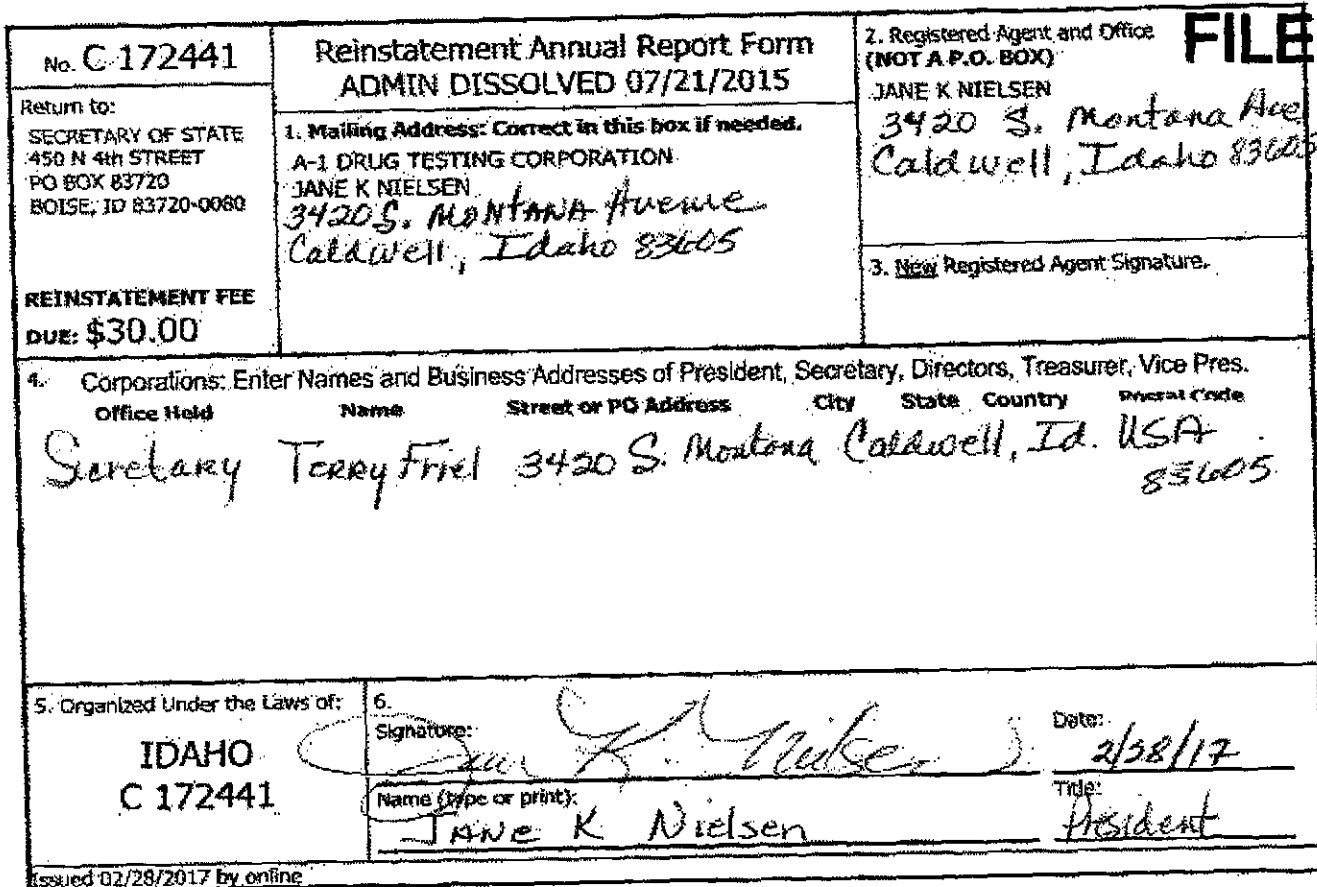 No. C 172441
Return to:
SECRETARY OF STATE
450 N 4th STREET
PO BOX 83720
BOISE, ID 83720-0080
REINSTATEMENT FEE
DUE: $30.00
Reinstatement Annual Report Form
ADMIN DISSOLVED 07/21/2015
1. Mailing Address: Correct in this box if needed.
A-1 DRUG TESTING CORPORATION
JANE K NIELSEN
3420 S. MONTANA Avenue
Caldwell, Idaho 83605
2. Registered Agent and Office
(NOT A P.O. BOX)
FILE
JANE K NIELSEN
3420 S. Montana Ave
Caldwell, Idaho 83605
3. New Registered Agent Signature.
4. Corporations: Enter Names and Business Addresses of President, Secretary, Directors, Treasurer, Vice Pres.
Office Held Name Street or PO Address City State Country Postal Code
Secretary Terry Friel 3420 S. Montana Caldwell, Id. USA
83605
5. Organized Under the Laws of:
IDAHO
C 172441
6.
Signature: Jane K. Nielsen
Date: 2/28/17
Name (type or print): JANE K Nielsen
Title: President
Issued 02/28/2017 by online